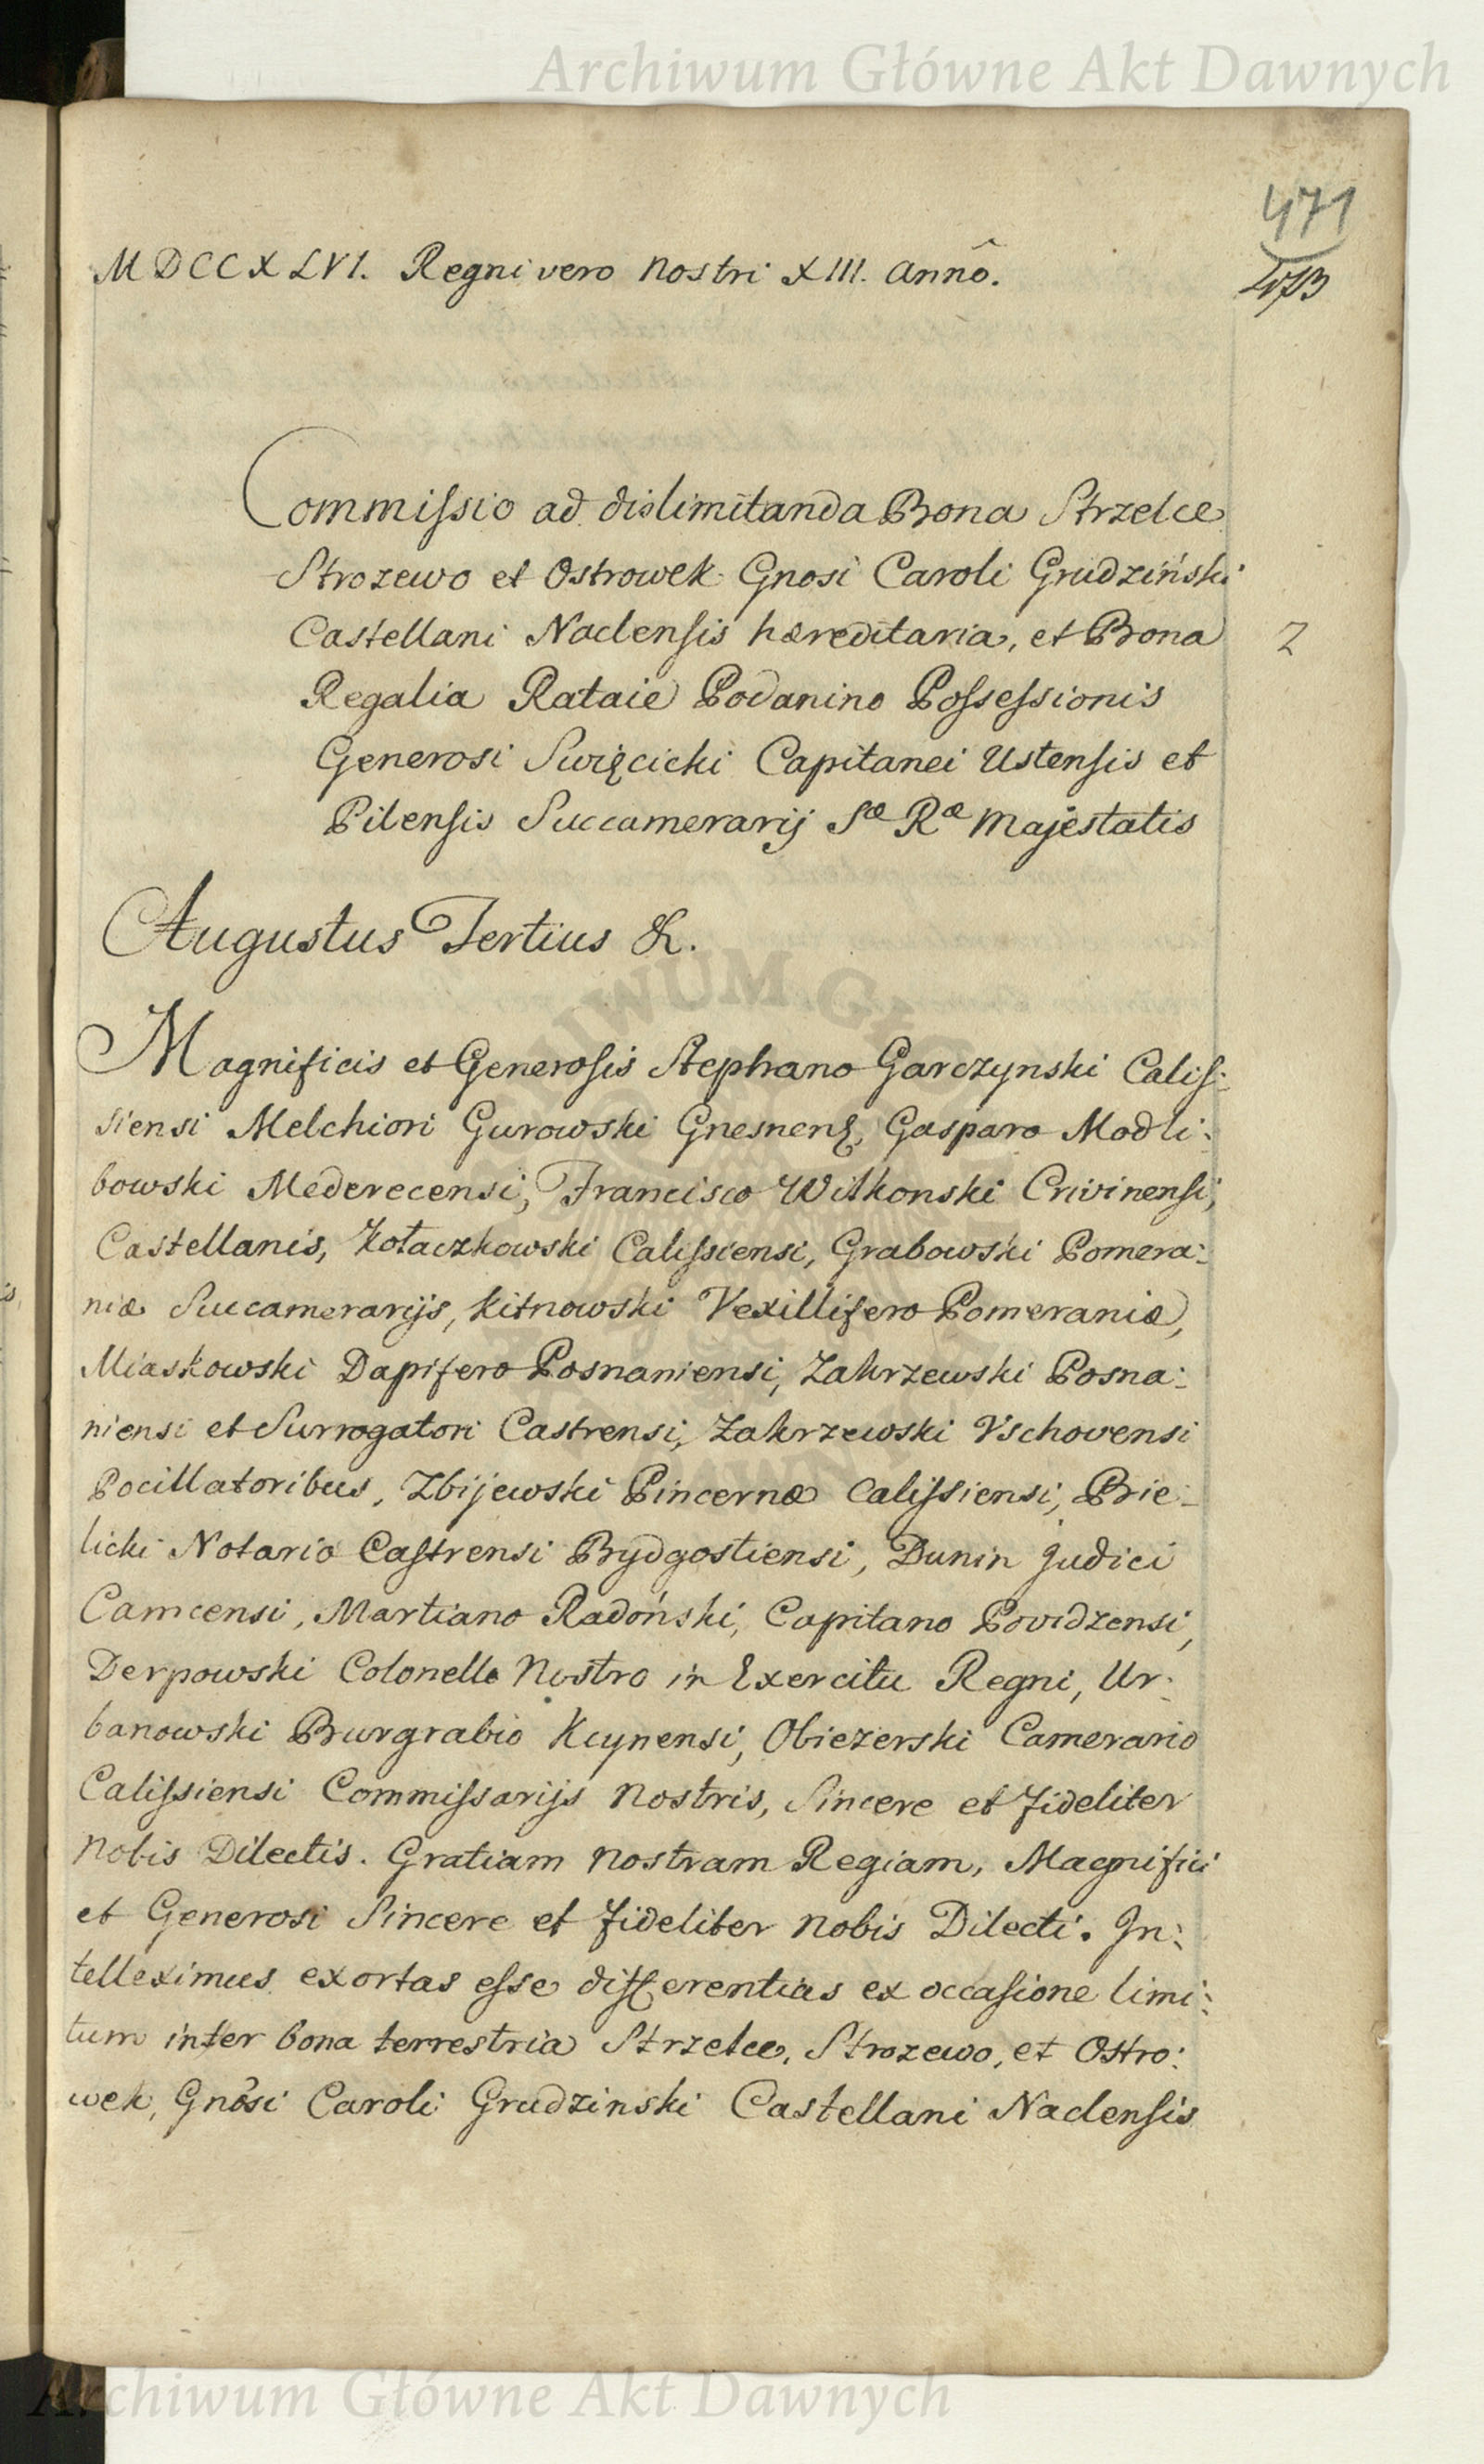 Archiwum Główne Akt Dawnych
471
473
MDCCXLVI. Regni vero nostri XIII. Annô.
Commissio ad dislimitanda Bona Strzelce
Strozewo et Ostrowek Gnosi Caroli Grudziński
Castellani Naclensis hæreditaria, et Bona
2
Regalia Rataie Podanino Possessionis
Generosi Swięcicki Capitanei Ustensis et
Pilensis Succamerarij Sæ Ræ Majestatis
Augustus Tertius &.
Magnificis et Generosis Stephano Garczynski Calis:
siensi Melchiori Gurowski Gnesnens, Gasparo Modli:
bowski Mederecensi, Francisco Wilkonski Crivinensi,
Castellanis, Kołaczkowski Calissiensi, Grabowski Pomera:
niæ Succamerarijs, Kitnowski Vexillifero Pomeraniæ,
Miaskowski Dapifero Posnaniensi, Zakrzewski Posna:
niensi et Surrogatori Castrensi, Zakrzewski Vschovensi
Pocillatoribus, Zbijewski Pincernæ Calissiensi, Brie:
licki Notario Castrensi Bydgostiensi, Dunin Judici
Camcensi, Martiano Radoński, Capitano Povidzensi,
Derpowski Colonello Nostro in Exercitu Regni, Ur:
banowski Burgrabio Kcynensi, Obiezerski Camerario
Calissiensi Commissarijs Nostris, Sincere et fideliter
Nobis Dilectis. Gratiam nostram Regiam, Magnifici
et Generosi Sincere et fideliter nobis Dilecti. In:
telleximus exortas esse differentias ex occasione limi:
tum inter bona terrestria Strzelce, Strozewo, et Ostro:
wek, Gnosi Caroli Grudzinski Castellani Naclensis
Archiwum Główne Akt Dawnych